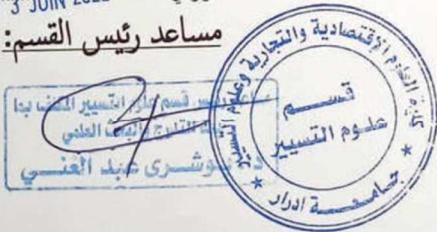 3 JUIN 202
مساعد رئيس القسم:
كلية العلوم الاقتصادية والتجارية وعلوم التسيير
قسم
علوم التسيير
جامعة ادرار
قسم علوم التسيير المكلف بما
التدرج والبحث العلمي
د. بوشرى عبد الغني